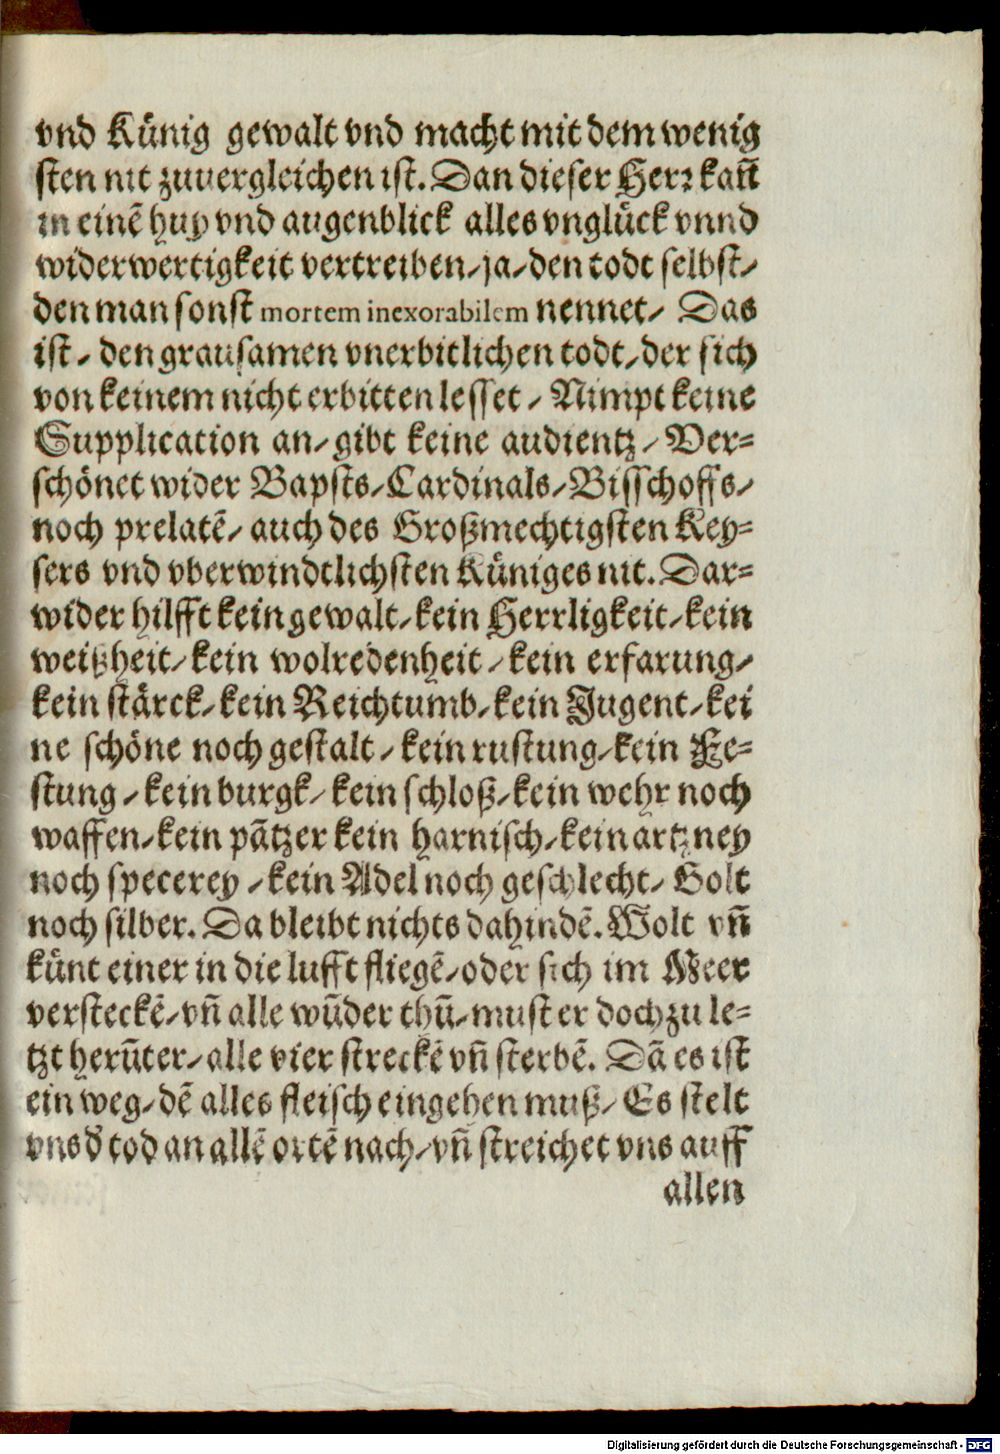 vnd Künig gewalt vnd macht mit dem wenig
sten nit zuuergleichen ist. Dan dieser Herꝛ kañ
in einẽ huy vnd augenblick alles vnglück vnnd
widerwertigkeit vertreiben/ ja/ den todt selbst/
den man sonst mortem inexorabilem nennet/ Das
ist/ den grausamen vnerbitlichen todt/ der sich
von keinem nicht erbitten lesset/ Nimpt keine
Supplication an/ gibt keine audientz/ Ver=
schönet wider Bapsts/ Cardinals/ Bisschoffs/
noch prelatẽ/ auch des Großmechtigsten Key=
sers vnd vberwindtlichsten Küniges nit. Dar=
wider hilfft kein gewalt/ kein Herrligkeit/ kein
weißheit/ kein wolredenheit/ kein erfarung/
kein stärck/ kein Reichtumb/ kein Jugent/ kei
ne schöne noch gestalt/ kein rustung/ kein Fe=
stung/ kein burgk/ kein schloß/ kein wehr noch
waffen/ kein pãtzer kein harnisch/ kein artzney
noch specerey/ kein Adel noch geschlecht/ Golt
noch silber. Da bleibt nichts dahindẽ. Wolt vñ
künt einer in die lufft fliegẽ/ oder sich im Meer
versteckẽ/ vñ alle wũder thũ/ must er doch zu le=
tzt herũter/ alle vier streckẽ vñ sterbẽ. Dã es ist
ein weg/ dẽ alles fleisch eingehen muß/ Es stelt
vns d̕ tod an allẽ ortẽ nach/ vñ streichet vns auff
allen
Digitalisierung gefördert durch die Deutsche Forschungsgemeinschaft - DFG